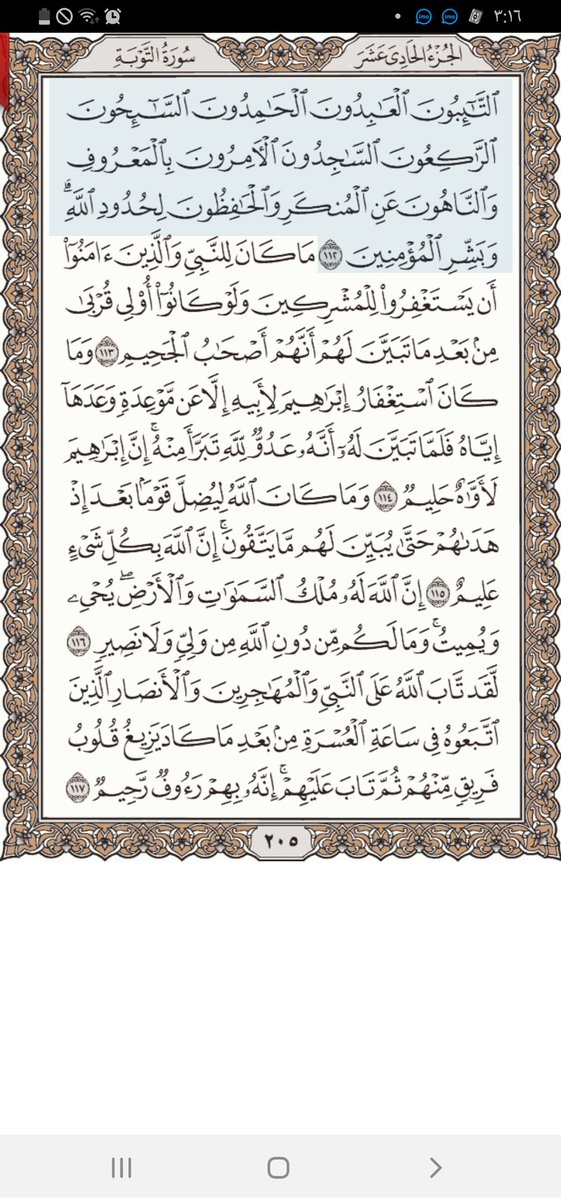 ٣:١٦
الجُزْءُ الحَادِي عَشَرَ
سُورَةُ التَّوْبَةِ
ٱلتَّٰٓئِبُونَ ٱلْعَٰبِدُونَ ٱلْحَٰمِدُونَ ٱلسَّٰٓئِحُونَ
ٱلرَّٰكِعُونَ ٱلسَّٰجِدُونَ ٱلْءَامِرُونَ بِٱلْمَعْرُوفِ
وَٱلنَّاهُونَ عَنِ ٱلْمُنكَرِ وَٱلْحَٰفِظُونَ لِحُدُودِ ٱللَّهِۗ
وَبَشِّرِ ٱلْمُؤْمِنِينَ ١١٢ مَا كَانَ لِلنَّبِيِّ وَٱلَّذِينَ ءَامَنُوٓا۟
أَن يَسْتَغْفِرُوا۟ لِلْمُشْرِكِينَ وَلَوْ كَانُوٓا۟ أُو۟لِى قُرْبَىٰ
مِنۢ بَعْدِ مَا تَبَيَّنَ لَهُمْ أَنَّهُمْ أَصْحَٰبُ ٱلْجَحِيمِ ١١٣ وَمَا
كَانَ ٱسْتِغْفَارُ إِبْرَٰهِيمَ لِأَبِيهِ إِلَّا عَن مَّوْعِدَةٍ وَعَدَهَآ
إِيَّاهُ فَلَمَّا تَبَيَّنَ لَهُۥٓ أَنَّهُۥ عَدُوٌّ لِّلَّهِ تَبَرَّأَ مِنْهُۚ إِنَّ إِبْرَٰهِيمَ
لَأَوَّٰهٌ حَلِيمٌ ١١٤ وَمَا كَانَ ٱللَّهُ لِيُضِلَّ قَوْمًۢا بَعْدَ إِذْ
هَدَىٰهُمْ حَتَّىٰ يُبَيِّنَ لَهُم مَّا يَتَّقُونَۚ إِنَّ ٱللَّهَ بِكُلِّ شَىْءٍ
عَلِيمٌ ١١٥ إِنَّ ٱللَّهَ لَهُۥ مُلْكُ ٱلسَّمَٰوَٰتِ وَٱلْأَرْضِۖ يُحْىِۦ
وَيُمِيتُۚ وَمَا لَكُم مِّن دُونِ ٱللَّهِ مِن وَلِىٍّ وَلَا نَصِيرٍ ١١٦
لَّقَد تَّابَ ٱللَّهُ عَلَى ٱلنَّبِىِّ وَٱلْمُهَٰجِرِينَ وَٱلْأَنصَارِ ٱلَّذِينَ
ٱتَّبَعُوهُ فِى سَاعَةِ ٱلْعُسْرَةِ مِنۢ بَعْدِ مَا كَادَ يَزِيغُ قُلُوبُ
فَرِيقٍ مِّنْهُمْ ثُمَّ تَابَ عَلَيْهِمْۚ إِنَّهُۥ بِهِمْ رَءُوفٌ رَّحِيمٌ ١١٧
٢٠٥